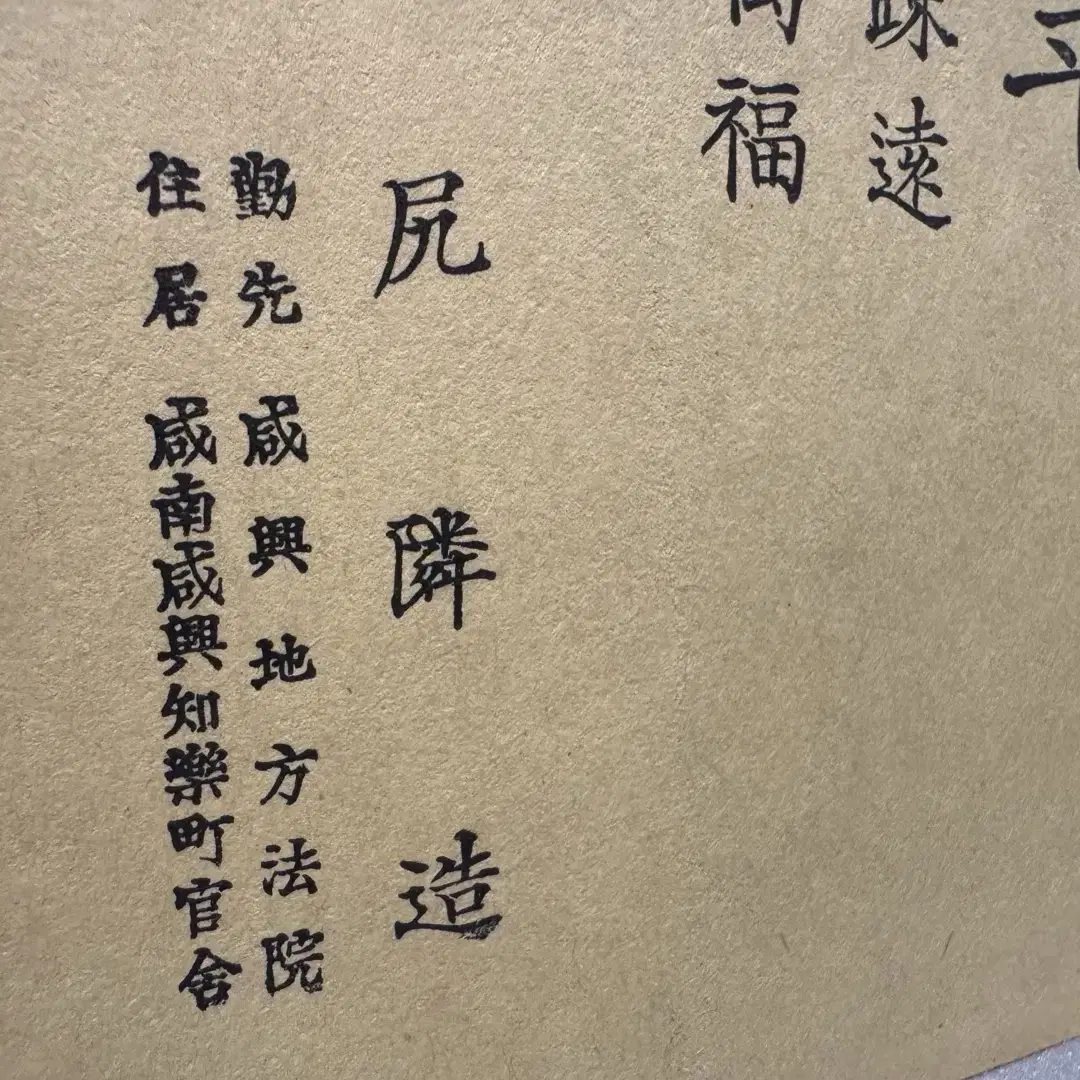 疎遠
福
尻隣造
勤先 咸興地方法院
住居 咸南咸興知樂町官舍